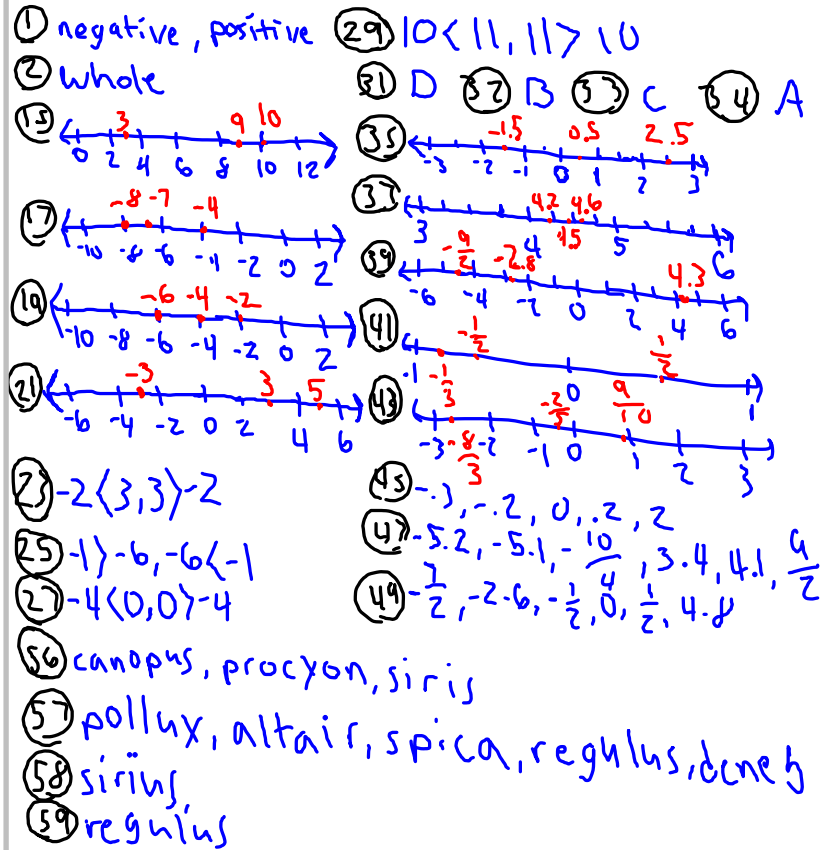 ① negative, positive
② whole
⑮ 3 9 10
0 2 4 6 8 10 12
⑰ -8 -7 -4
-10 -8 -6 -4 -2 0 2
⑲ -6 -4 -2
-10 -8 -6 -4 -2 0 2
㉑ -3 3 5
-6 -4 -2 0 2 4 6
㉓ -2<3, 3>-2
㉕ -1>-6, -6<-1
㉗ -4<0, 0>-4
㉙ 10<11, 11>10
㉛ D ㉜ B ㉝ C ㉞ A
㉟ -1.5 0.5 2.5
-3 -2 -1 0 1 2 3
㊲ 4.2 4.6
3 4 4.5 5 6
㊴ -9/2 -2.8 4.3
-6 -4 -2 0 2 4 6
㊶ -1/2 1/2
-1 -1/3 0 1
㊸ -2/5 9/10
-3 -8/3 -2 -1 0 1 2 3
㊺ -.3, -.2, 0, .2, 2
㊼ -5.2, -5.1, -10/4, 3.4, 4.1, 9/2
㊾ -7/2, -2.6, -1/2, 0, 1/2, 4.8
56 canopus, procyon, siris
57 pollux, altair, spica, regulus, deneb
58 sirius
59 regulus